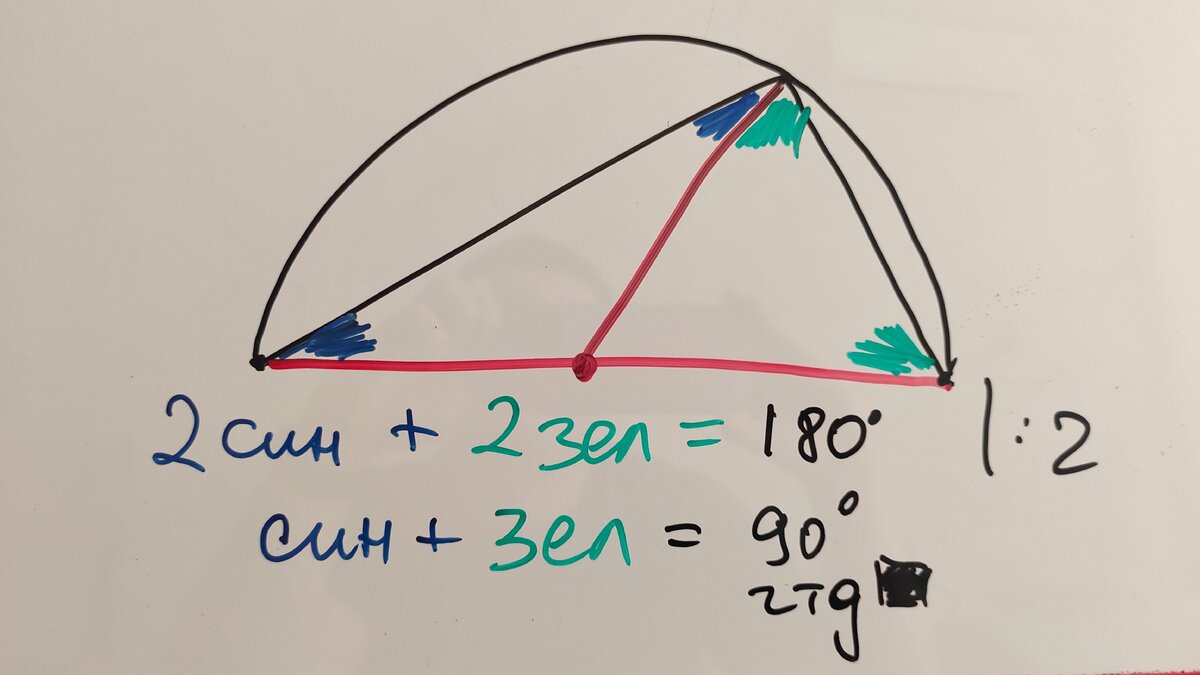 2 син + 2 зел = 180° | : 2
син + зел = 90°
чтд